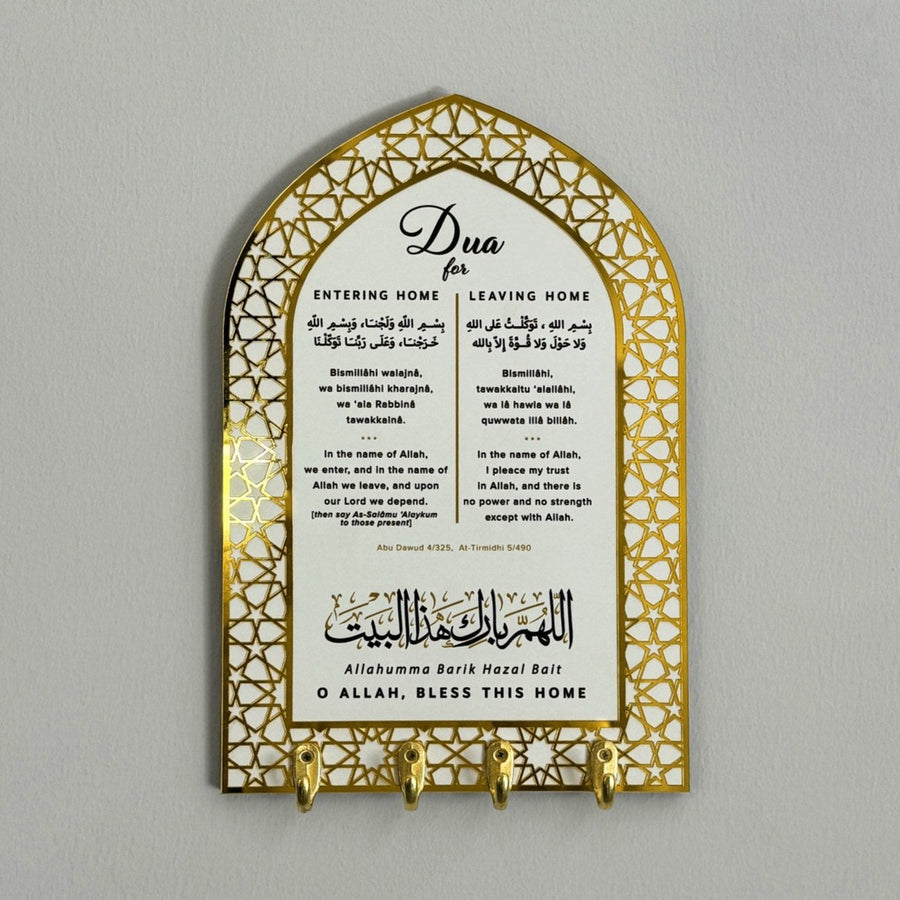 Dua
for
ENTERING HOME
بِسْمِ اللّهِ وَلَجْنَا، وَبِسْمِ اللّهِ
خَرَجْنَا، وَعَلَى رَبِّنَا تَوَكَّلْنَا
Bismillâhi walajnâ,
wa bismillâhi kharajnâ,
wa ‘ala Rabbinâ
tawakkalnâ.
In the name of Allah,
we enter, and in the name of
Allah we leave, and upon
our Lord we depend.
[then say As-Salâmu 'Alaykum
to those present]
LEAVING HOME
بِسْمِ اللهِ ، تَوَكَّلْتُ عَلى اللهِ
وَلا حَوْلَ وَلا قُــوَّةَ إلاّ بِالله
Bismillâhi,
tawakkaltu ‘alallâhi,
wa lâ hawla wa lâ
quwwata illâ billâh.
In the name of Allah,
I pleace my trust
in Allah, and there is
no power and no strength
except with Allah.
Abu Dawud 4/325, At-Tirmidhi 5/490
اللّٰهُمَّ بَارِكْ هَذَا الْبَيْتَ
Allahumma Barik Hazal Bait
O ALLAH, BLESS THIS HOME